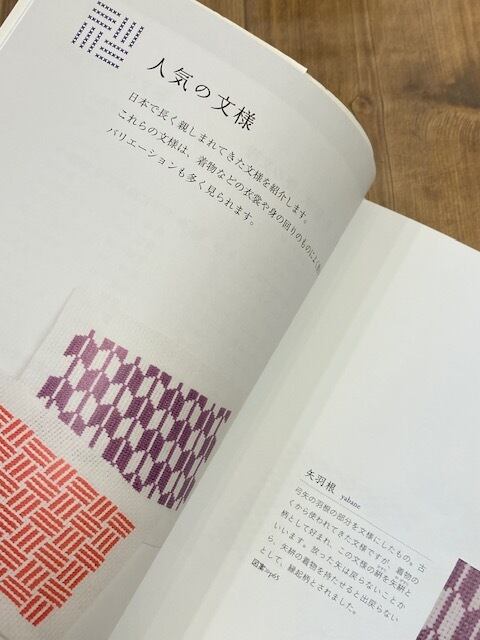 人気の文様
日本で長く親しまれてきた文様を紹介します。
これらの文様は、着物などの衣裳や身の回りのものによく
バリエーションも多く見られます。
矢羽根 yabane
弓矢の羽根の部分を文様にしたもの。古
くから使われてきた文様ですが、着物の
柄として好まれ、この文様の絣を矢絣と
いいます。放った矢は戻らないことか
ら、矢絣の着物を持たせると出戻らない
として、縁起柄とされました。
図案⇒p65